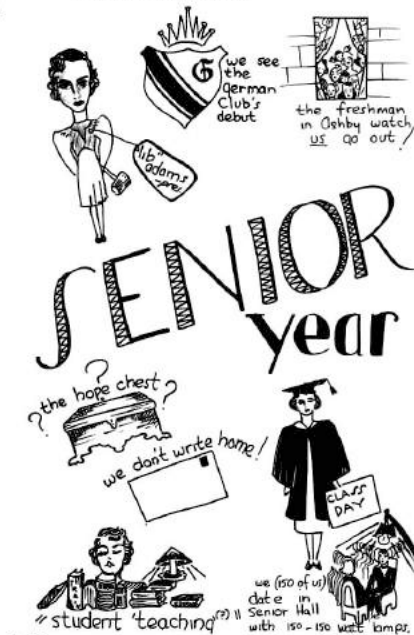 G
we see
the
German
Club's
debut
the freshman
in Ashby watch
us go out!
"lib"
adams
-pres
SENIOR
year
? ? ?
the hope chest
we don't write home!
CLASS
DAY
"student 'teaching'(?)"
we (150 of us)
date in
Senior Hall
with 150-150 watt lamps.